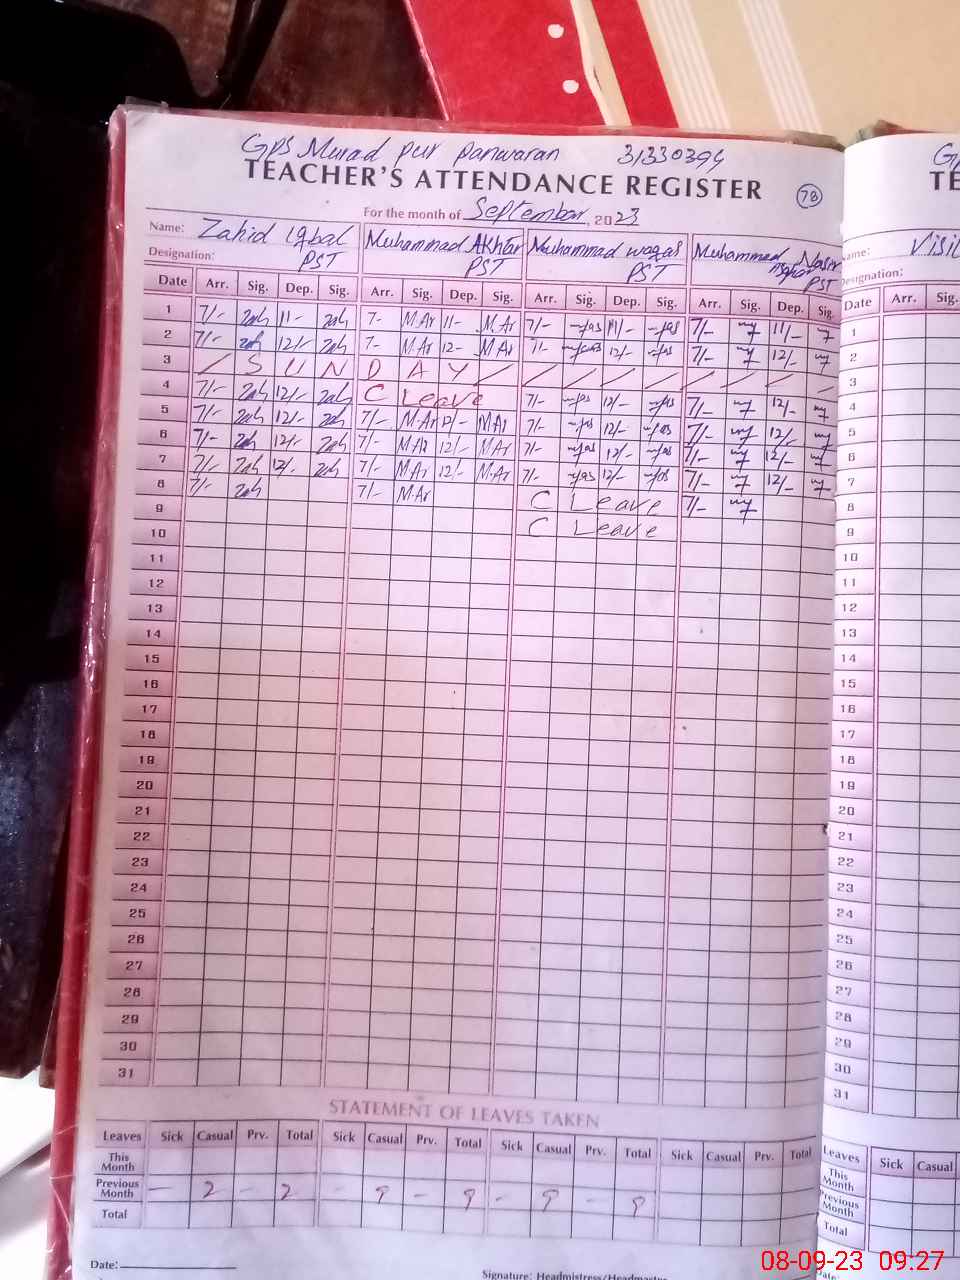 GPS Murad pur panwaran 31330394
TEACHER'S ATTENDANCE REGISTER 78
For the month of September, 2023
Name: Zahid Iqbal Muhammad Akhtar Muhammad waqas Muhammad Nasir
Designation: PST PST PST PST
Date Arr. Sig. Dep. Sig. Arr. Sig. Dep. Sig. Arr. Sig. Dep. Sig. Arr. Sig. Dep. Sig.
1 7/- Zah 11- Zah 7- M.Ar 11- M.Ar 7/- 11/- 7/- 11/-
2 7/- Zah 12/- Zah 7- M.Ar 12- M.Ar 7/- 12/- 7/- 12/-
3 S U N D A Y
4 7/- Zah 12/- Zah C Leave 7/- 12/- 7/- 12/-
5 7/- Zah 12/- Zah 7/- M.Ar 12/- M.Ar 7/- 12/- 7/- 12/-
6 7/- Zah 12/- Zah 7/- M.Ar 12/- M.Ar 7/- 12/- 7/- 12/-
7 7/- Zah 12/- Zah 7/- M.Ar 12/- M.Ar 7/- 12/- 7/- 12/-
8 7/- Zah 7/- M.Ar C Leave 7/-
9 C Leave
10
11
12
13
14
15
16
17
18
19
20
21
22
23
24
25
26
27
28
29
30
31
STATEMENT OF LEAVES TAKEN
Leaves Sick Casual Prv. Total Sick Casual Prv. Total Sick Casual Prv. Total Sick Casual Prv. Total
This Month
Previous Month - 2 - 2 - 9 - 9 - 9 - 9
Total
Date:
Signature: Headmistress/Headmaster
TE
Name:
Designation:
Date Arr. Sig.
1
2
3
4
5
6
7
8
9
10
11
12
13
14
15
16
17
18
19
20
21
22
23
24
25
26
27
28
29
30
31
Leaves Sick Casual
This Month
Previous Month
Total
08-09-23 09:27